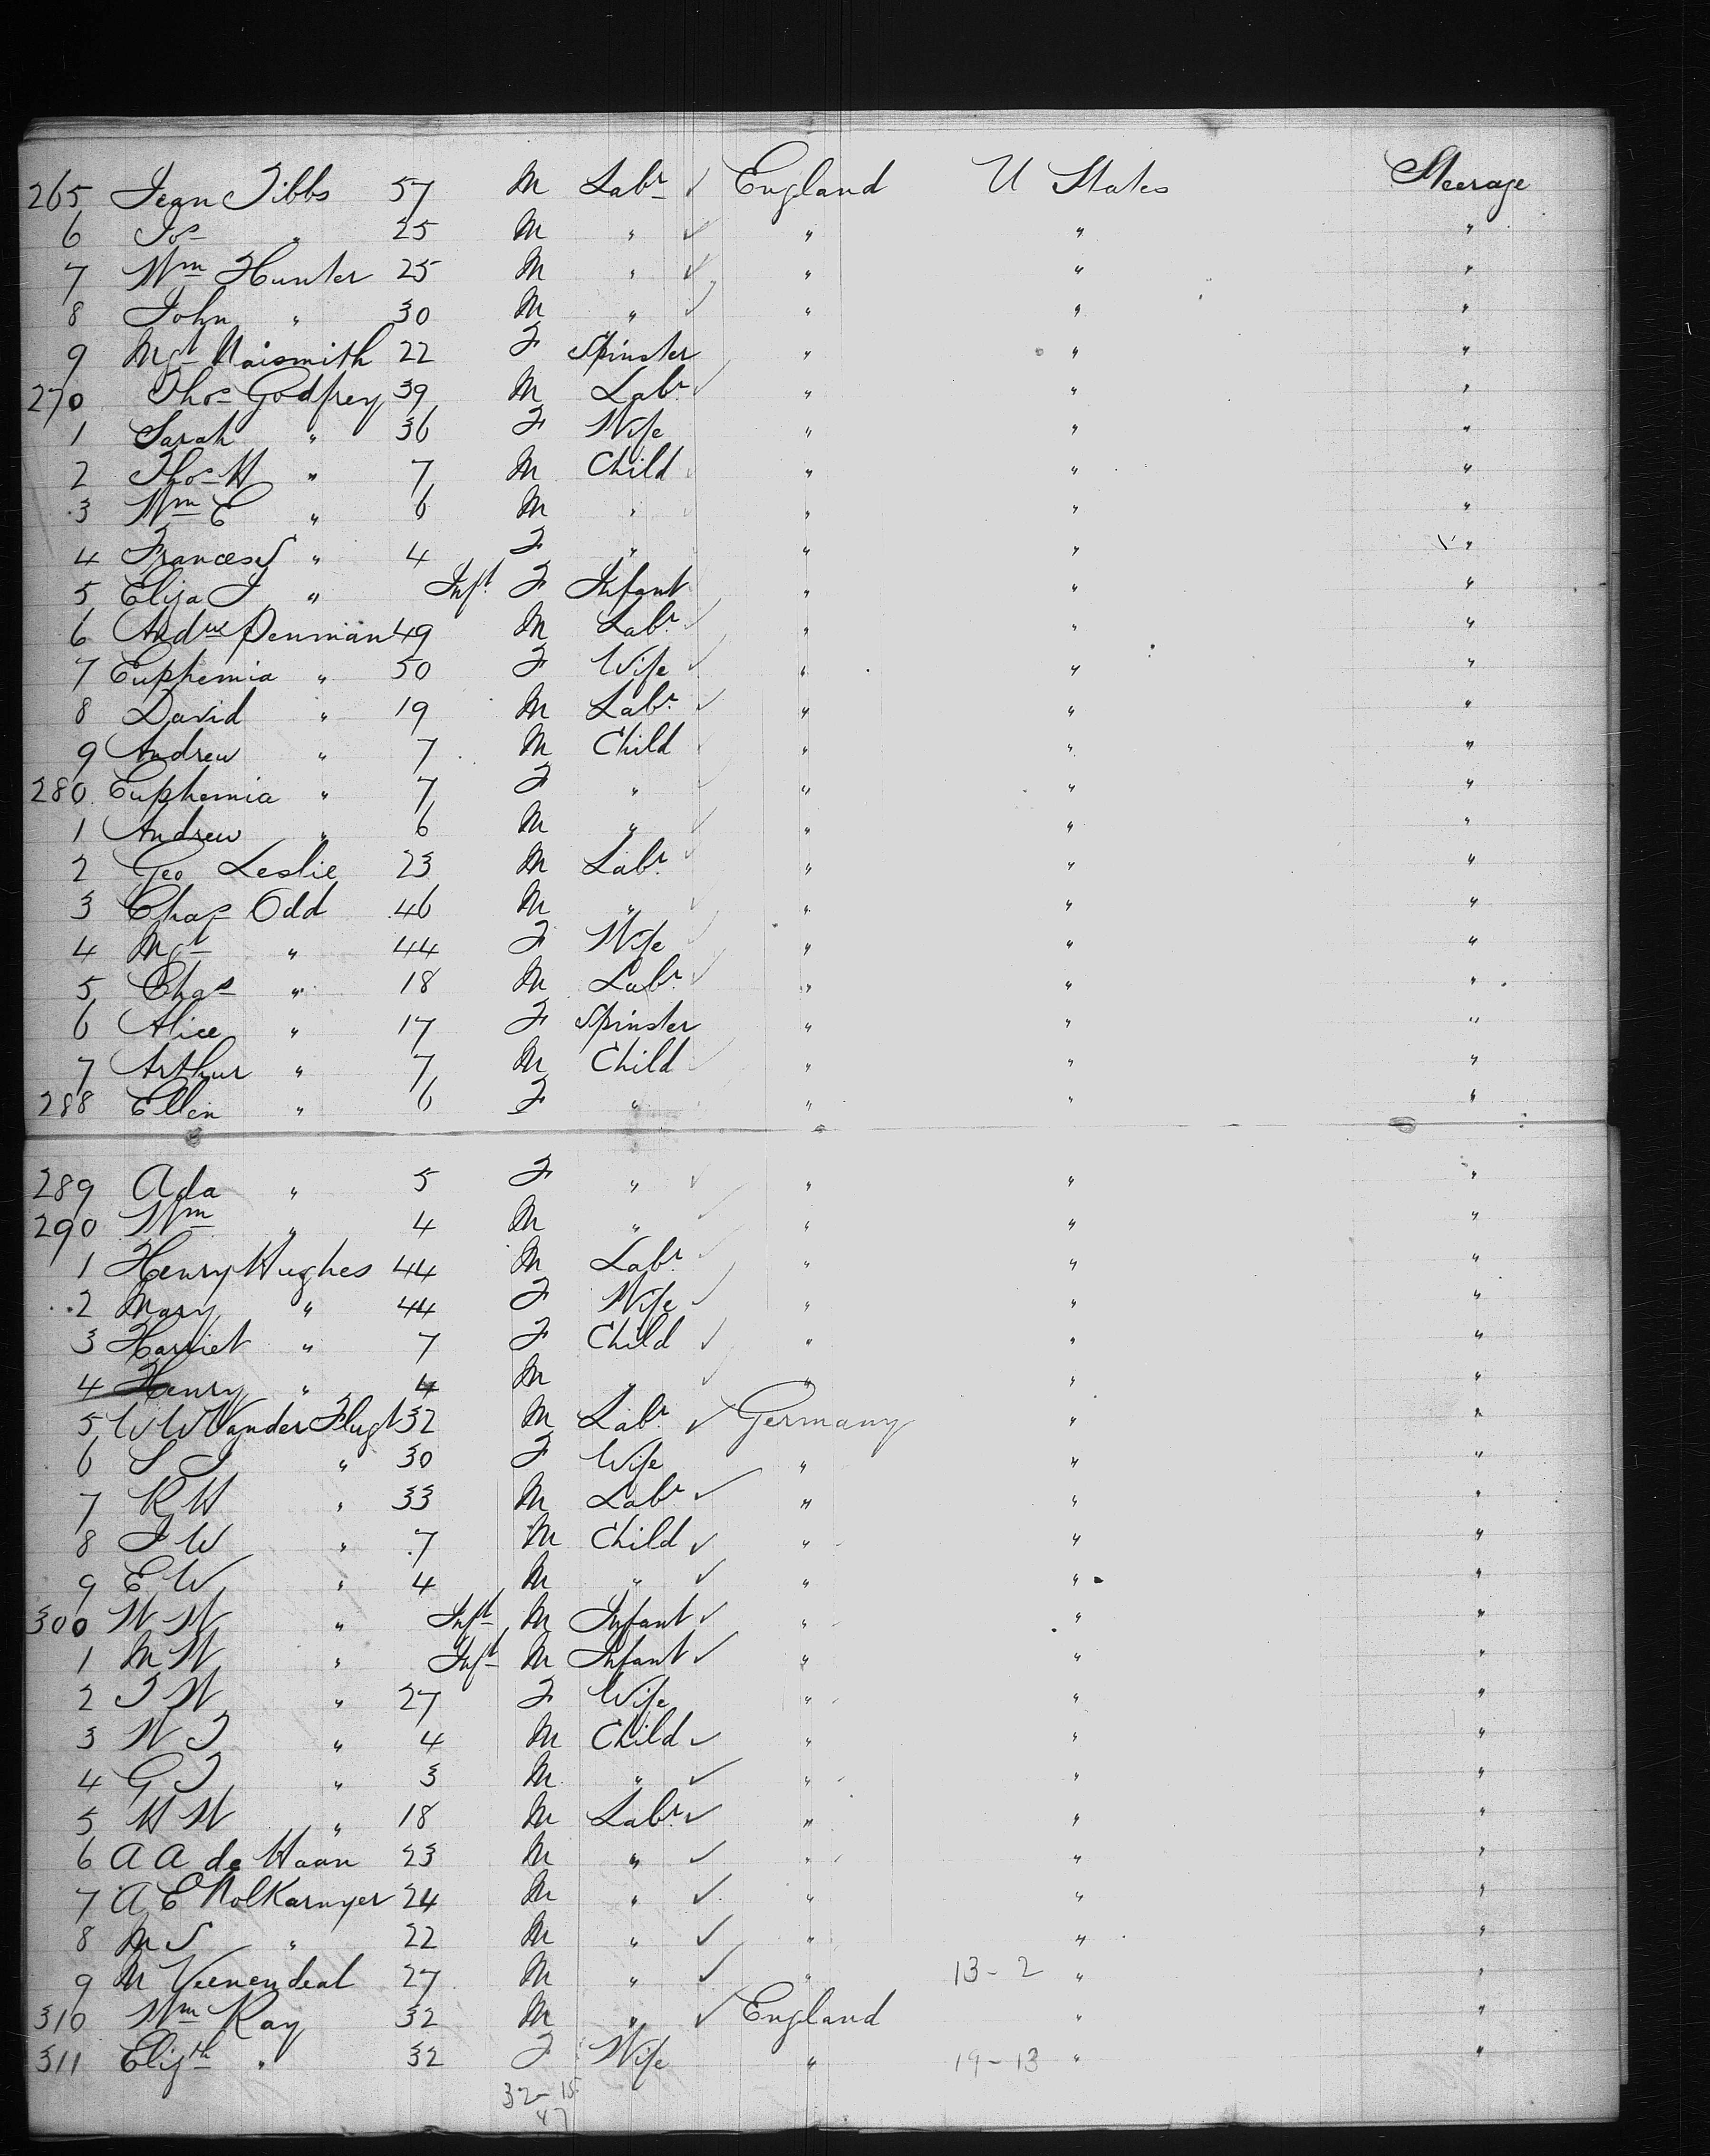 265 Jean Tibbs 57 M Labr ✓ England U States Steerage
6 Jos " 25 M " ✓ " " "
7 Wm Hunter 25 M " ✓ " " "
8 John " 30 M " ✓ " " "
9 Mgt Naismith 22 F Spinster " " "
270 Thos Godfrey 39 M Labr ✓ " " "
1 Sarah " 36 F Wife " " "
2 Thos H " 7 M Child " " "
3 Wm E " 6 M " " " "
4 Frances S " 4 F " " " "
5 Eliza J " Inft F Infant " " "
6 Andw Penman 49 M Labr ✓ " " "
7 Euphemia " 50 F Wife ✓ " " "
8 David " 19 M Labr ✓ " " "
9 Andrew " 7 M Child ✓ " " "
280 Euphemia " 7 F " ✓ " " "
1 Andrew " 6 M " ✓ " " "
2 Geo Leslie 23 M Labr ✓ " " "
3 Chas Odd 46 M " ✓ " " "
4 Mgt " 44 F Wife ✓ " " "
5 Chas " 18 M Labr ✓ " " "
6 Alice " 17 F Spinster " " "
7 Arthur " 7 M Child ✓ " " "
288 Ellen " 6 F " " " "
289 Ada " 5 F " ✓ " " "
290 Wm " 4 M " ✓ " " "
1 Henry Hughes 44 M Labr ✓ " " "
2 Mary " 44 F Wife ✓ " " "
3 Harriet " 7 F Child ✓ " " "
4 Henry " 4 M " ✓ " " "
5 W W Vander Flugt 32 M Labr ✓ Germany " "
6 S J " 30 F Wife " " "
7 R H " 33 M Labr ✓ " " "
8 J W " 7 M Child ✓ " " "
9 E W " 4 M " ✓ " " "
300 W W " Inft M Infant ✓ " " "
1 M W " Inft M Infant ✓ " " "
2 T W " 27 F Wife " " "
3 W T " 4 M Child ✓ " " "
4 G T " 3 M " ✓ " " "
5 H W " 18 M Labr ✓ " " "
6 A A de Haan 23 M " ✓ " " "
7 A E Nolkarnyer 24 M " ✓ " " "
8 M S " 22 M " ✓ " " "
9 M Veenendeal 27 M " ✓ " 13-2 " "
310 Wm Ray 32 M " ✓ England " "
311 Elizth " 32 F Wife " 19-13 " "
32-15
47